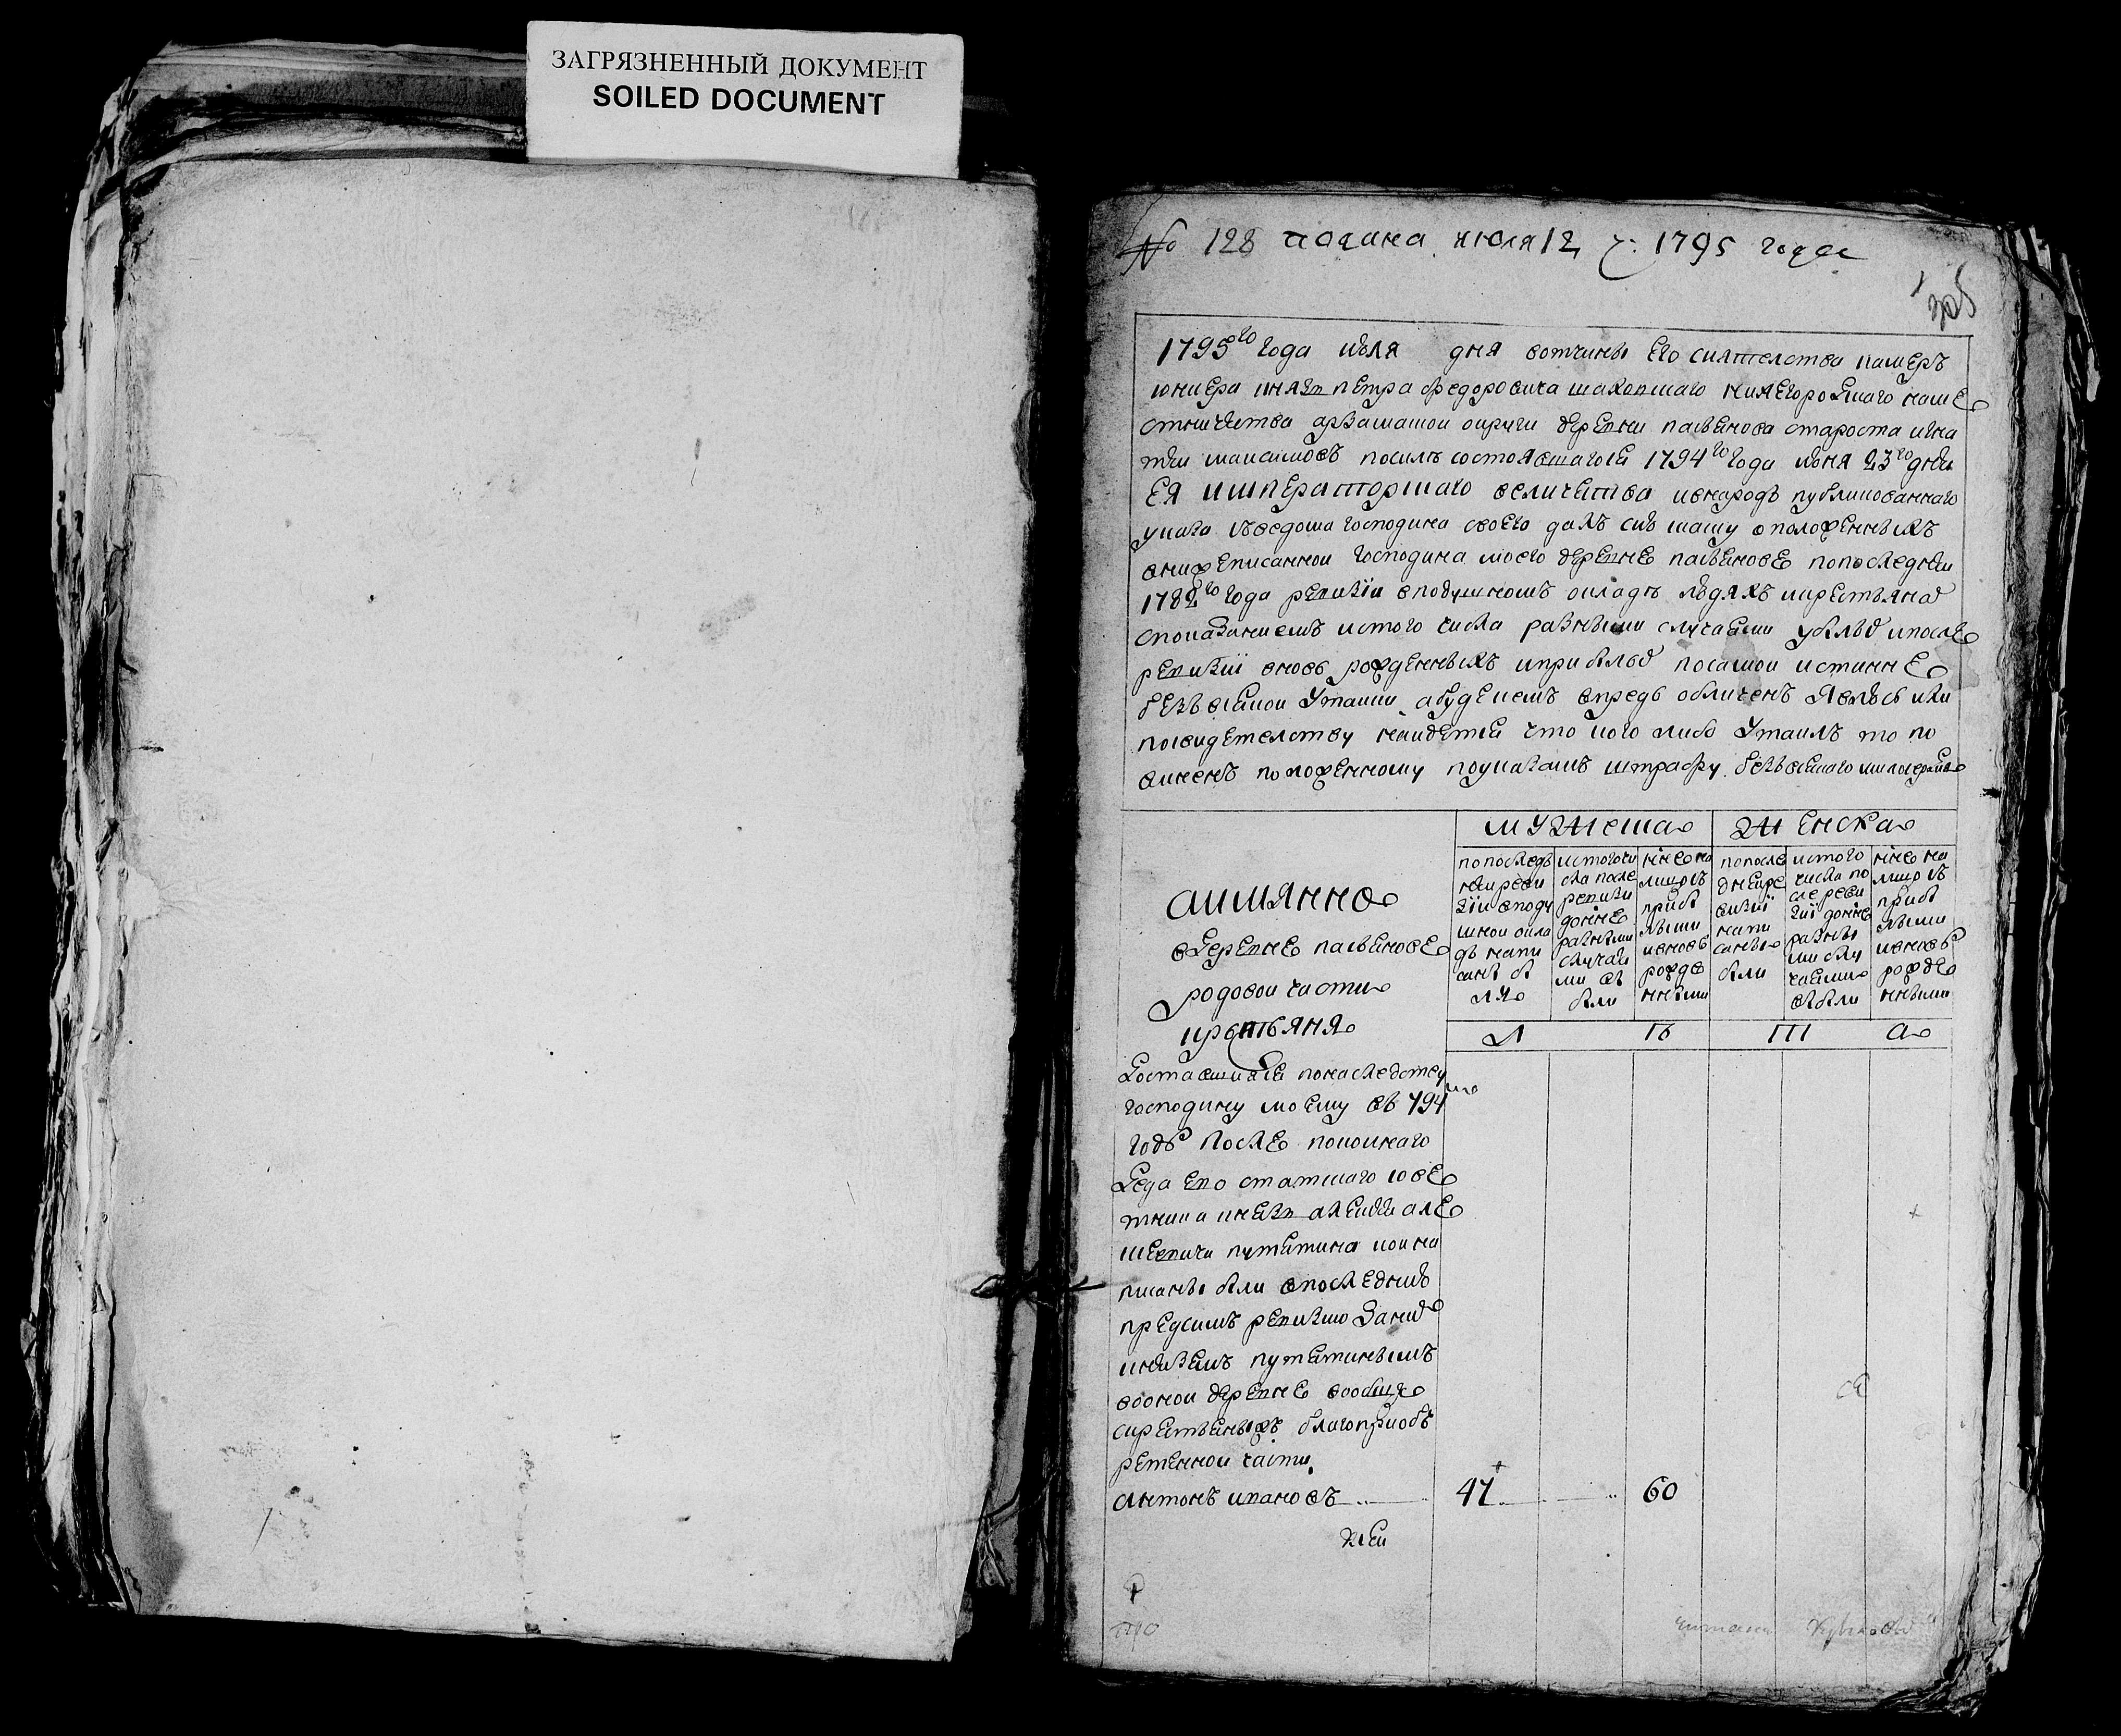 ЗАГРЯЗНЕННЫЙ ДОКУМЕНТ
SOILED DOCUMENT
№ 128 подана июля 12 ч: 1795 года
1795го года июля дня вотчины Его сиятелства камеръ
юнкера князь петра федоровича шаховскаго нижегородскаго намѣ
стничества арзамаской округи деревни пасьянова староста игна
тей максимовъ посилѣ состоявшагося 1794го года июня 23го дня
Ея императорскаго величества ивнародъ публикованнаго
указа свѣдома господина своего далъ сию скаску оположенныхъ
внижеписанной господина моего деревне пасьянове попоследней
1782го года ревизии вподушномъ окладѣ людяхъ икрестьяна
спомазаниемъ истого числа разными случаями убыло ипосле
ревизии вновь рожденныхъ иприбыло посамои истинне
безъ всякой Утайки абудемъ впредь обличенъ Явлюсь или
посвидетелству найдется что кого либо Утаилъ то по
виненъ положенному поуказамъ штрафу безъ всякаго милосердия
мужеска
женска
аимянно
вдеревне пасьянове
родовои части
крестьяня
попоследъ
ней реви
зии вподу
шной окла
дъ напи
саны бы
ло
истого чи
сла после
ревизии
доныне
разными
случая
ми вы
были
ныне на
лицо съ
прибы
лыми
ивновь
рожде
нными
попосле
дней ре
визии
напи
саны
были
истого
числа по
сле реви
зии доныне
разны
ми слу
чаями
выбыли
ныне на
лицо съ
прибы
лыми
ивновь
рожде
нными
Л Ѣ Т А
Доставшияся понаследству
господину моему въ 794м
годъ после покойнаго
Деда Ево статскаго сове
тника князь алексея але
ксеевича путятина кои на
писаны были впоследнюю
предъсимъ ревизию Заним
княземъ путятинымъ
водной деревне вообще
скрестьяны благоприобъ
ретенной части
антонъ ивановъ 47 60
жен